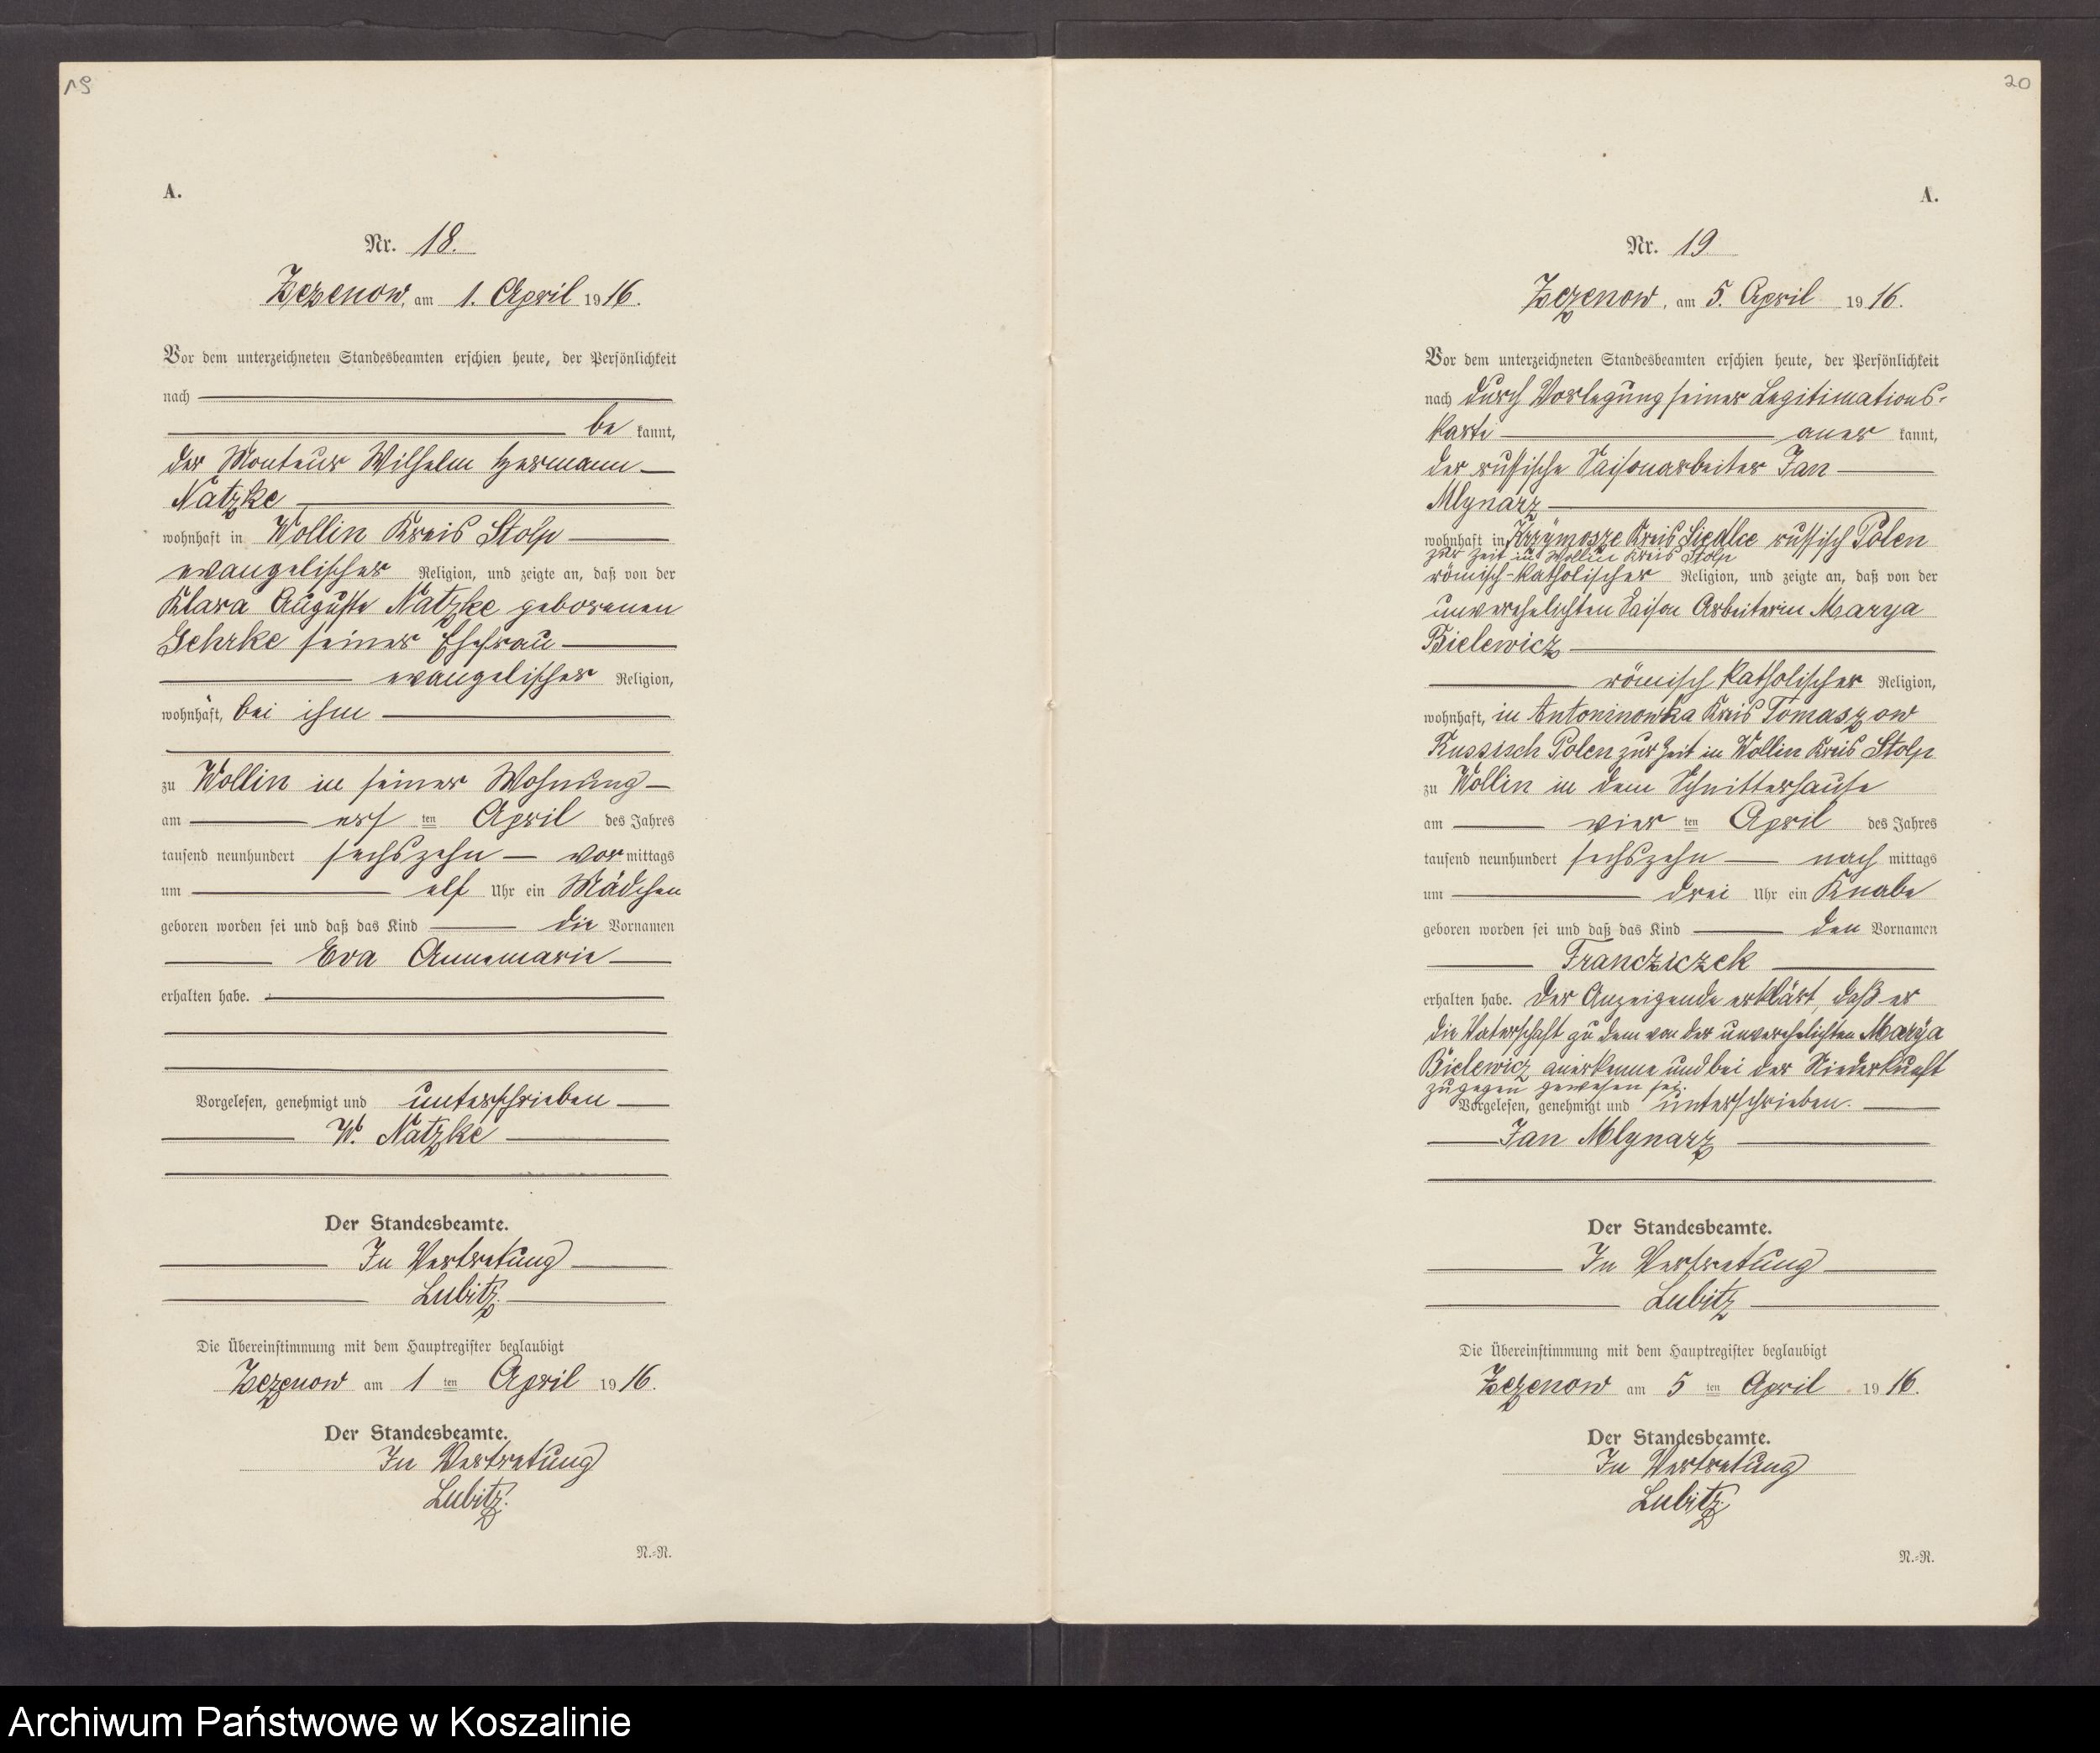 19
A.
Nr. 18.
Zezenow, am 1. April 1916.
Vor dem unterzeichneten Standesbeamten erschien heute, der Persönlichkeit
nach
be kannt,
der Monteur Wilhelm Hermann
Natzke,
wohnhaft in Wollin Kreis Stolp
evangelischer Religion, und zeigte an, daß von der
Klara Auguste Natzke geborenen
Gehrke seiner Ehefrau
evangelischer Religion,
wohnhaft, bei ihm
zu Wollin in seiner Wohnung
am ers ten April des Jahres
tausend neunhundert sechszehn vor mittags
um elf Uhr ein Mädchen
geboren worden sei und daß das Kind die Vornamen
Eva Annemarie
erhalten habe.
Vorgelesen, genehmigt und unterschrieben
W. Natzke
Der Standesbeamte.
In Vertretung
Lubitz.
Die Übereinstimmung mit dem Hauptregister beglaubigt
Zezenow am 1 ten April 1916.
Der Standesbeamte.
In Vertretung
Lubitz.
N.=R.
20
A.
Nr. 19.
Zezenow, am 5. April 1916.
Vor dem unterzeichneten Standesbeamten erschien heute, der Persönlichkeit
nach durch Vorlegung seiner Legitimations-
karte aner kannt,
der russische Saisonarbeiter Jan
Mlynarz
wohnhaft in Krzymosze Kreis Siedlce russisch Polen
zur Zeit in Wollin Kreis Stolp
römisch-katholischer Religion, und zeigte an, daß von der
unverehelichten Saison Arbeiterin Marya
Bielewicz
römisch katholischer Religion,
wohnhaft, in Antoninowka Kreis Tomaszow
Russisch Polen zur Zeit in Wollin Kreis Stolp
zu Wollin in dem Schnitterhause
am vier ten April des Jahres
tausend neunhundert sechszehn nach mittags
um drei Uhr ein Knabe
geboren worden sei und daß das Kind den Vornamen
Francziczek
erhalten habe. Der Anzeigende erklärt, daß er
die Vaterschaft zu dem von der unverehelichten Marya
Bielewicz anerkenne und bei der Niederkunft
zugegen gewesen sei.
Vorgelesen, genehmigt und unterschrieben.
Jan Mlynarz
Der Standesbeamte.
In Vertretung
Lubitz
Die Übereinstimmung mit dem Hauptregister beglaubigt
Zezenow am 5 ten April 1916.
Der Standesbeamte.
In Vertretung
Lubitz.
N.=R.
Archiwum Państwowe w Koszalinie